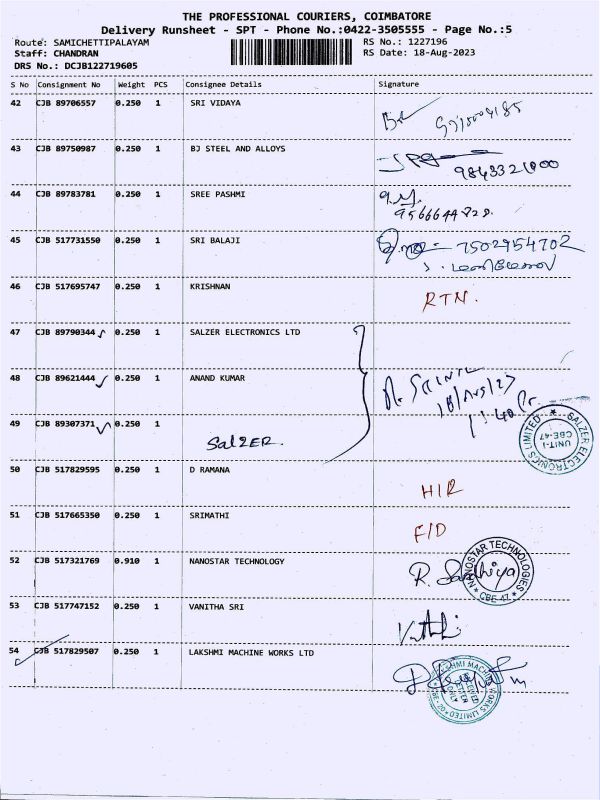 THE PROFESSIONAL COURIERS, COIMBATORE
Delivery Runsheet - SPT - Phone No.:0422-3505555 - Page No.:5
Route: SAMICHETTIPALAYAM RS No.: 1227196
Staff: CHANDRAN RS Date: 18-Aug-2023
DRS No.: DCJB122719605
S No Consignment No Weight PCS Consignee Details Signature
42 CJB 89706557 0.250 1 SRI VIDAYA
43 CJB 89750987 0.250 1 BJ STEEL AND ALLOYS
44 CJB 89783781 0.250 1 SREE PASHMI
9566644828
45 CJB 517731550 0.250 1 SRI BALAJI 7502954702
46 CJB 517695747 0.250 1 KRISHNAN RTN.
47 CJB 89790344 0.250 1 SALZER ELECTRONICS LTD
48 CJB 89621444 0.250 1 ANAND KUMAR
18/AUG/23
11:40
49 CJB 89307371 0.250 1
SALZER
SALZER ELECTRONICS LIMITED
UNIT-I
CBE-47
50 CJB 517829595 0.250 1 D RAMANA
51 CJB 517665350 0.250 1 SRIMATHI
52 CJB 517321769 0.910 1 NANOSTAR TECHNOLOGY
R. Sandhiya
NANOSTAR TECHNOLOGIES
CBE-47
53 CJB 517747152 0.250 1 VANITHA SRI
54 CJB 517829507 0.250 1 LAKSHMI MACHINE WORKS LTD
LAKSHMI MACHINE WORKS LIMITED